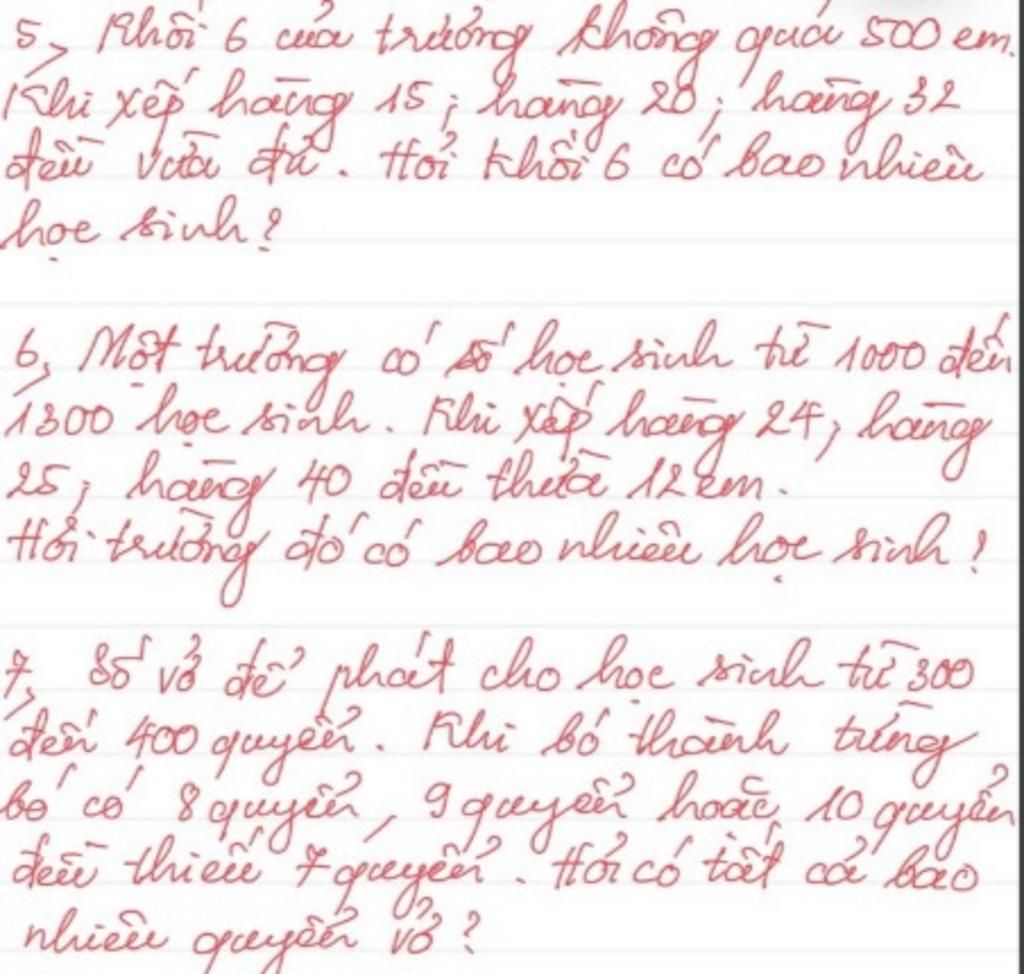 5, Khối 6 của trường không quá 500 em.
Khi xếp hàng 15; hàng 20; hàng 32
đều vừa đủ. Hỏi khối 6 có bao nhiêu
học sinh?
6, Một trường có số học sinh từ 1000 đến
1300 học sinh. Khi xếp hàng 24; hàng
25; hàng 40 đều thừa 12 em.
Hỏi trường đó có bao nhiêu học sinh?
7, Số vở để phát cho học sinh từ 300
đến 400 quyển. Khi bó thành từng
bó có 8 quyển, 9 quyển hoặc 10 quyển
đều thiếu 7 quyển. Hỏi có tất cả bao
nhiêu quyển vở?